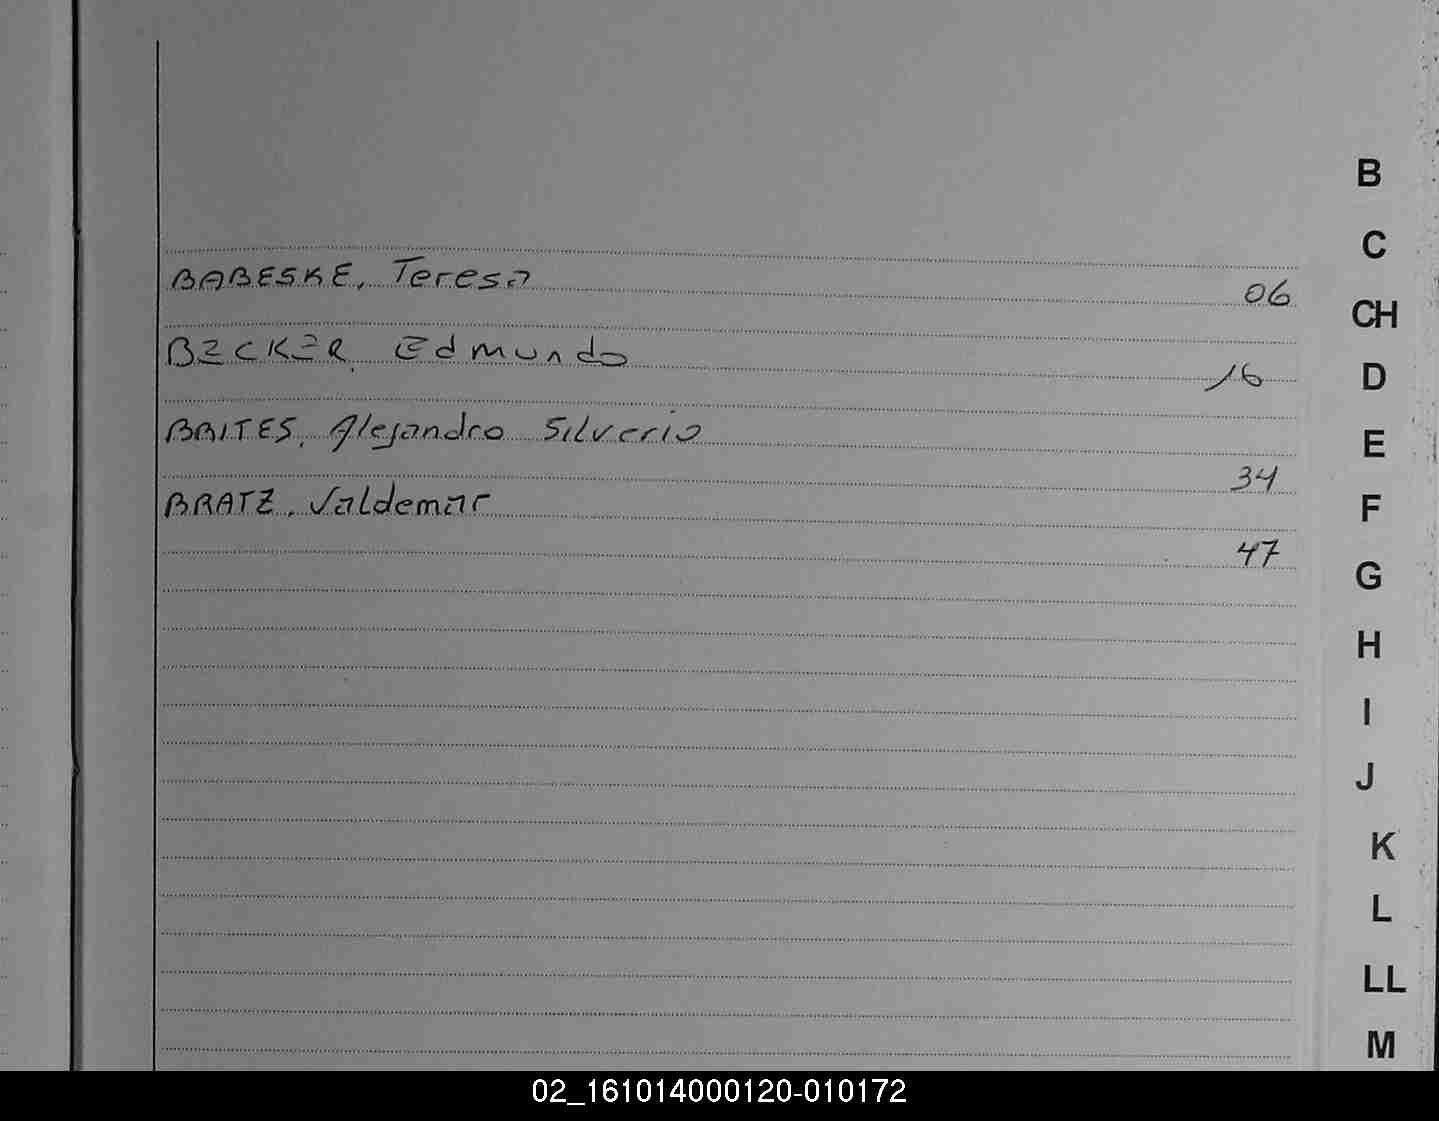 BABESKE, Teresa 06
BECKER, Edmundo 16
BRITES, Alejandro Silverio 34
BRATZ, Valdemar 47
B
C
CH
D
E
F
G
H
I
J
K
L
LL
M
02_161014000120-010172